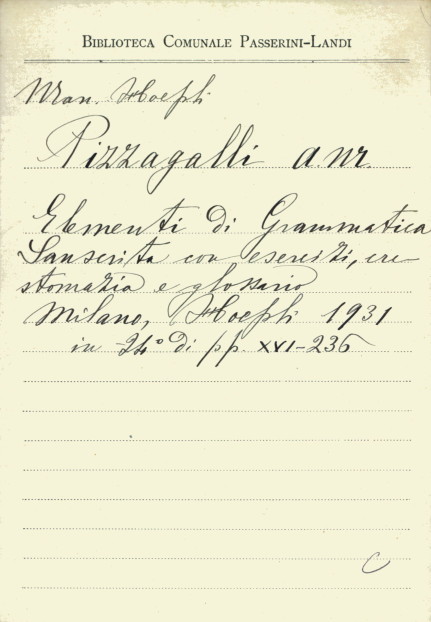 BIBLIOTECA COMUNALE PASSERINI-LANDI
Man. Hoepli
Pizzagalli a. m.
Elementi di Grammatica
Sanscrita con esercizi, cre-
stomazia e glossario
Milano, Hoepli 1931
in 24° di pp. XVI-236
C